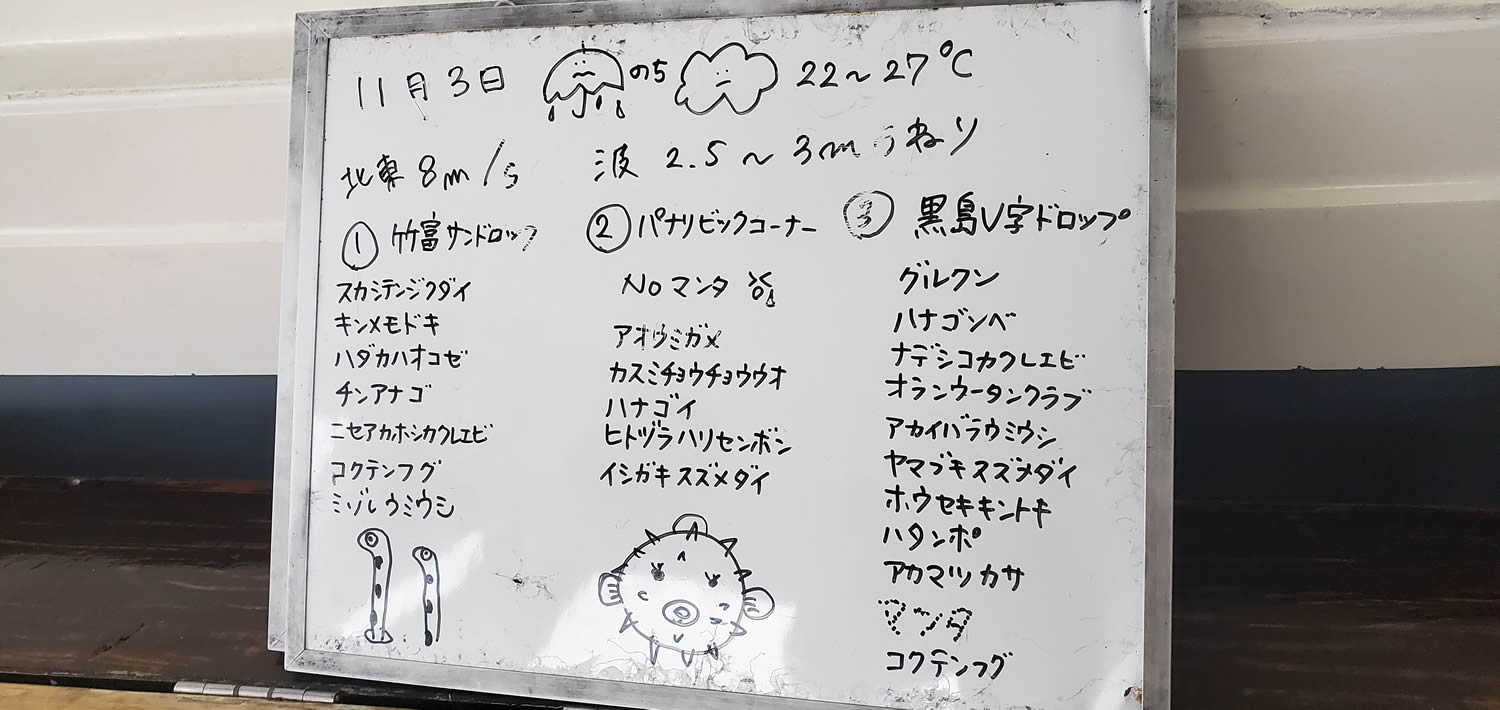 11月3日 のち 22～27℃
北東 8m/s 波 2.5～3m うねり
① 竹富サンドロップ
スカシテンジクダイ
キンメモドキ
ハダカハオコゼ
チンアナゴ
ニセアカホシカクレエビ
コクテンフグ
ミゾレウミウシ
② パナリビックコーナー
No マンタ
アオウミガメ
カスミチョウチョウウオ
ハナゴイ
ヒトヅラハリセンボン
イシガキスズメダイ
③ 黒島V字ドロップ
グルクン
ハナゴンベ
ナデシコカクレエビ
オランウータンクラブ
アカイバラウミウシ
ヤマブキスズメダイ
ホウセキキントキ
ハタンポ
アカマツカサ
マンタ
コクテンフグ